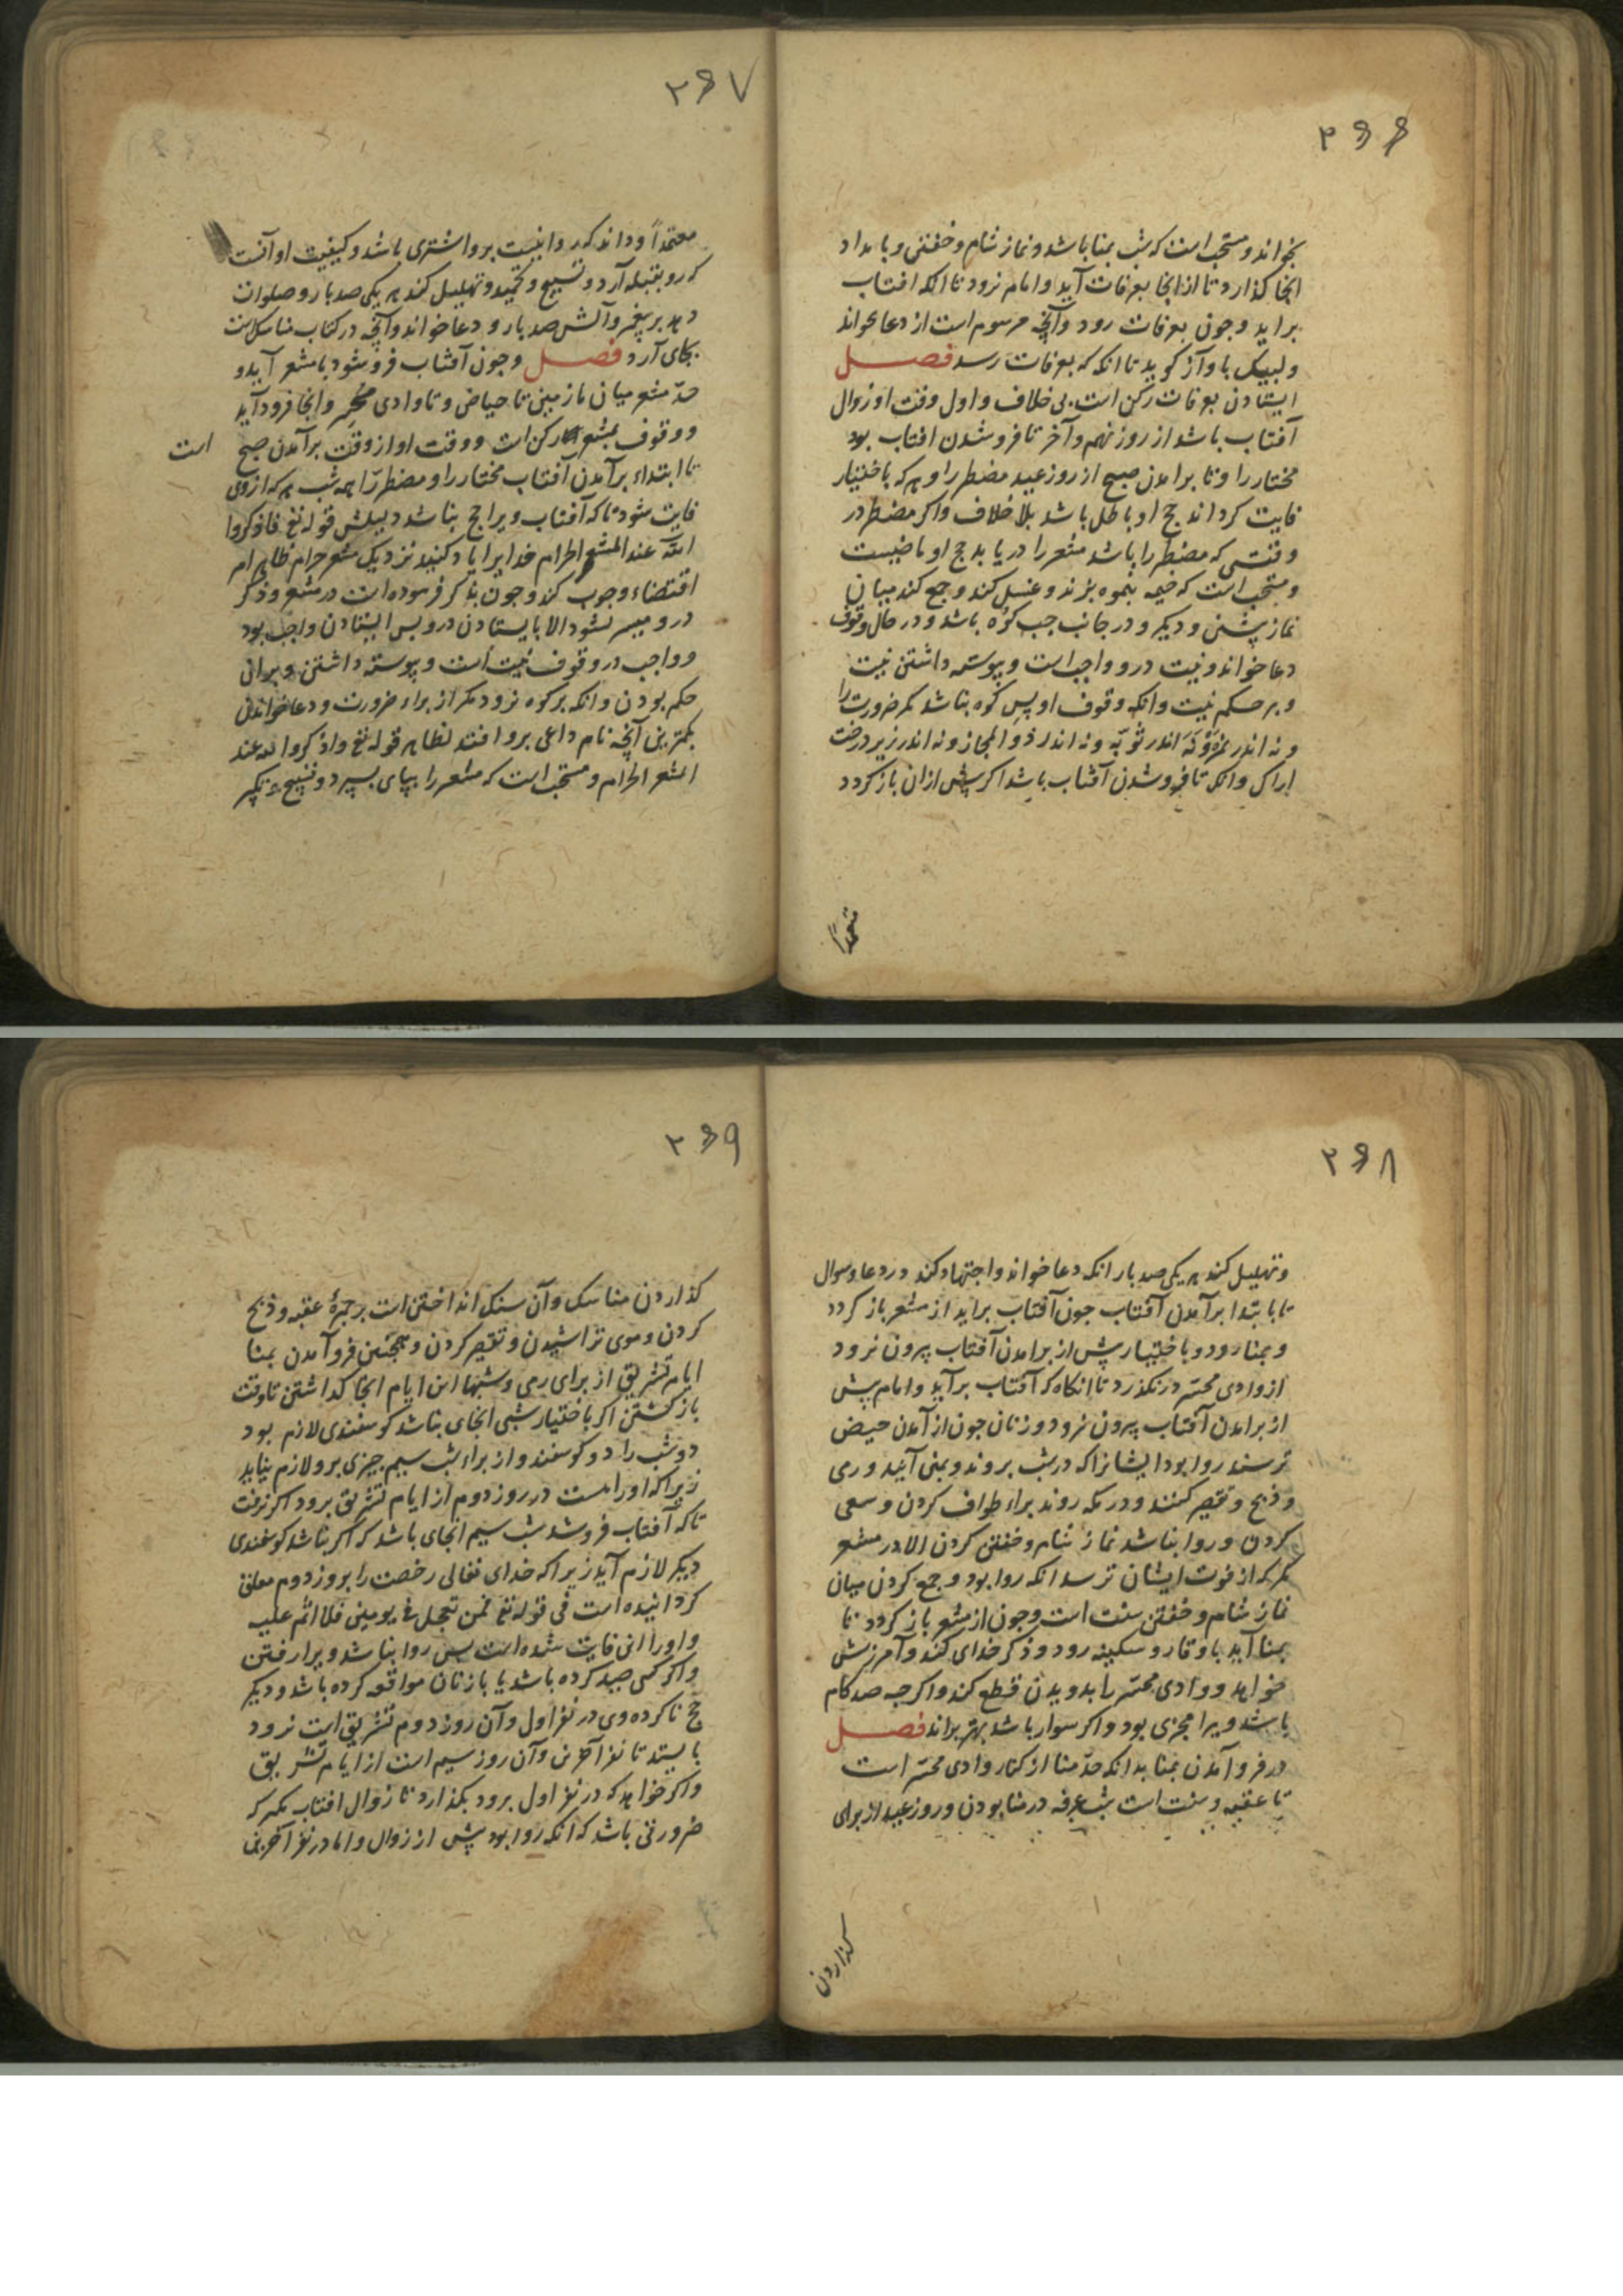 ۲۶۶
بخواند و مستحب است که شب بمنا باشد و نماز شام و خفتن و بامداد
انجا کذارد تا از انجا بعرفات آید و امام نرود تا انکه افتاب
براید و جون بعرفات رود و آنچه مرسوم است از دعا بخواند
و لبیک باواز کوید تا انکه که بعرفات رسد فصل
ایستادن بعرفات رکن است بی خلاف و اول وقت او زوال
آفتاب باشد از روز نهم و آخر تا فروشدن افتاب بود
مختار را و تا برامدن صبح از روز عید مضطر را و هر که باختیار
فایت کرداند حج او باطل باشد بلا خلاف و اکر مضطر در
وقتی که مضطر را باشد مشعر را دریابد حج او ماضیست
و مستحب است که خیمه بنمره بزند و غسل کند و جمع کند میان
نماز پیشین و دیکر و در جانب جب کوه باشد و در حال وقوف
دعا خواند و نیت درو واجب است و پیوسته داشتن نیت
و بر حکم نیت و انکه وقوف او پس کوه نباشد مکر ضرورت را
و نه اندر نمره و نه اندر ثویه و نه اندر ذو المجاز و نه اندر زیر درخت
اراک و انکه تا فروشدن آفتاب باشد اکر پیش ازان باز کردد
متعمداً
۲۶۷
معتمداً و داند که روا نیست برو اشتری باشد و کیفیت او آنست
که رو بقبله آرد و تسبیح و تحمید و تهلیل کند هر یکی صد بار و صلوات
دهد بر پیغمبر و آلش صد بار و دعا خواند و آنچه در کتاب مناسکست
بجای آرد فصل و جون آفتاب فروشود با مشعر آید و
حدّ مشعر میان مازمین تا حیاض و تا وادی محسّر و انجا فرود آید
و وقوف بمشعر رکن است و وقت او از وقت برآمدن صبح است
تا ابتداء برآمدن آفتاب مختار را و مضطر را همه شب هر که از وی
فایت شود تا که آفتاب ویرا حج نباشد دلیلش قوله تع فاذکروا
الله عند المشعر الحرام خدایرا یاد کنید نزدیک مشعر حرام ظاهر امر
اقتضاء وجوب کند و جون بذکر فرموده است در مشعر و ذکر
درو میسر نشود الا بایستادن درو پس ایستادن واجب بود
و واجب در وقوف نیت است و پیوسته داشتن و بران
حکم بودن و انکه بر کوه نرود مکر از براء ضرورت و دعا خواندن
بکمترین آنچه نام داعی برو افتد لظاهر قوله تع واذکروا الله عند
المشعر الحرام و مستحب است که مشعر را بپای بسپرد و تسبیح و تکبیر
۲۶۸
و تهلیل کند هر یکی صد بار انکه دعا خواند و اجتهاد کند در دعا و سوال
تا بابتدا برآمدن آفتاب جون آفتاب براید از مشعر باز کردد
و بمنا رود و باختیار پیش از برامدن آفتاب بیرون نرود
از وادی محسّر درنکذرد تا انکاه که آفتاب برآید و امام پیش
از برامدن آفتاب بیرون نرود و زنان جون از آمدن حیض
ترسند روا بود ایشانرا که در شب بروند و بمنی آیند و رمی
و ذبح و تقصیر کنند و در مکه روند براء طواف کردن و سعی
کردن و روا نباشد نماز شام و خفتن کردن الا در مشعر
مکر که از فوت ایشان ترسد انکه روا بود و جمع کردن میان
نماز شام و خفتن سنت است و جون از مشعر باز کردد تا
بمنا آید با وقار و سکینه رود و ذکر خدای کند و آمرزش
خواهد و وادی محسّر را بدویدن قطع کند و اکر جه صد کام
باشد ویرا مجزی بود و اکر سوار باشد بهتر براند فصل
در فروآمدن بمنا بدانکه حدّ منا از کنار وادی محسّر است
تا عقبه و سنت است شب عرفه در منا بودن و روز عید از برای
کذاردن
۲۶۹
کذاردن مناسک و آن سنک انداختن است بر جمرهٔ عقبه و ذبح
کردن و موی تراشیدن و تقصیر کردن و همجنین فروآمدن بمنا
ایام تشریق از برای رمی و شبها این ایام انجا کذاشتن تا وقت
بازکشتن اکر باختیار شبی انجای نباشد کوسفندی لازم بود
دو شب را دو کوسفند و از براء شب سیم جیزی برو لازم نیاید
زیرا که او راست در روز دوم از ایام تشریق برود اکر نرفت
تا که آفتاب فروشد شب سیم انجای باشد که اکر نباشد کوسفندی
دیکر لازم آید زیرا که خدای تعالی رخصت را بروز دوم معلق
کردانیده است فی قوله تع فمن تعجل فی یومین فلا اثم علیه
و او را این فایت شده است پس روا نباشد ویرا رفتن
و اکر کسی صید کرده باشد یا با زنان مواقعه کرده باشد و دیکر
حج ناکرده وی در نفر اول و آن روز دوم تشریق است نرود
بایستد تا نفر آخرین و آن روز سیم است از ایام تشریق
و اکر خواهد که در نفر اول برود بکذارد تا زوال افتاب مکر که
ضرورتی باشد که انکه روا بود پیش از زوال و اما در نفر آخرین